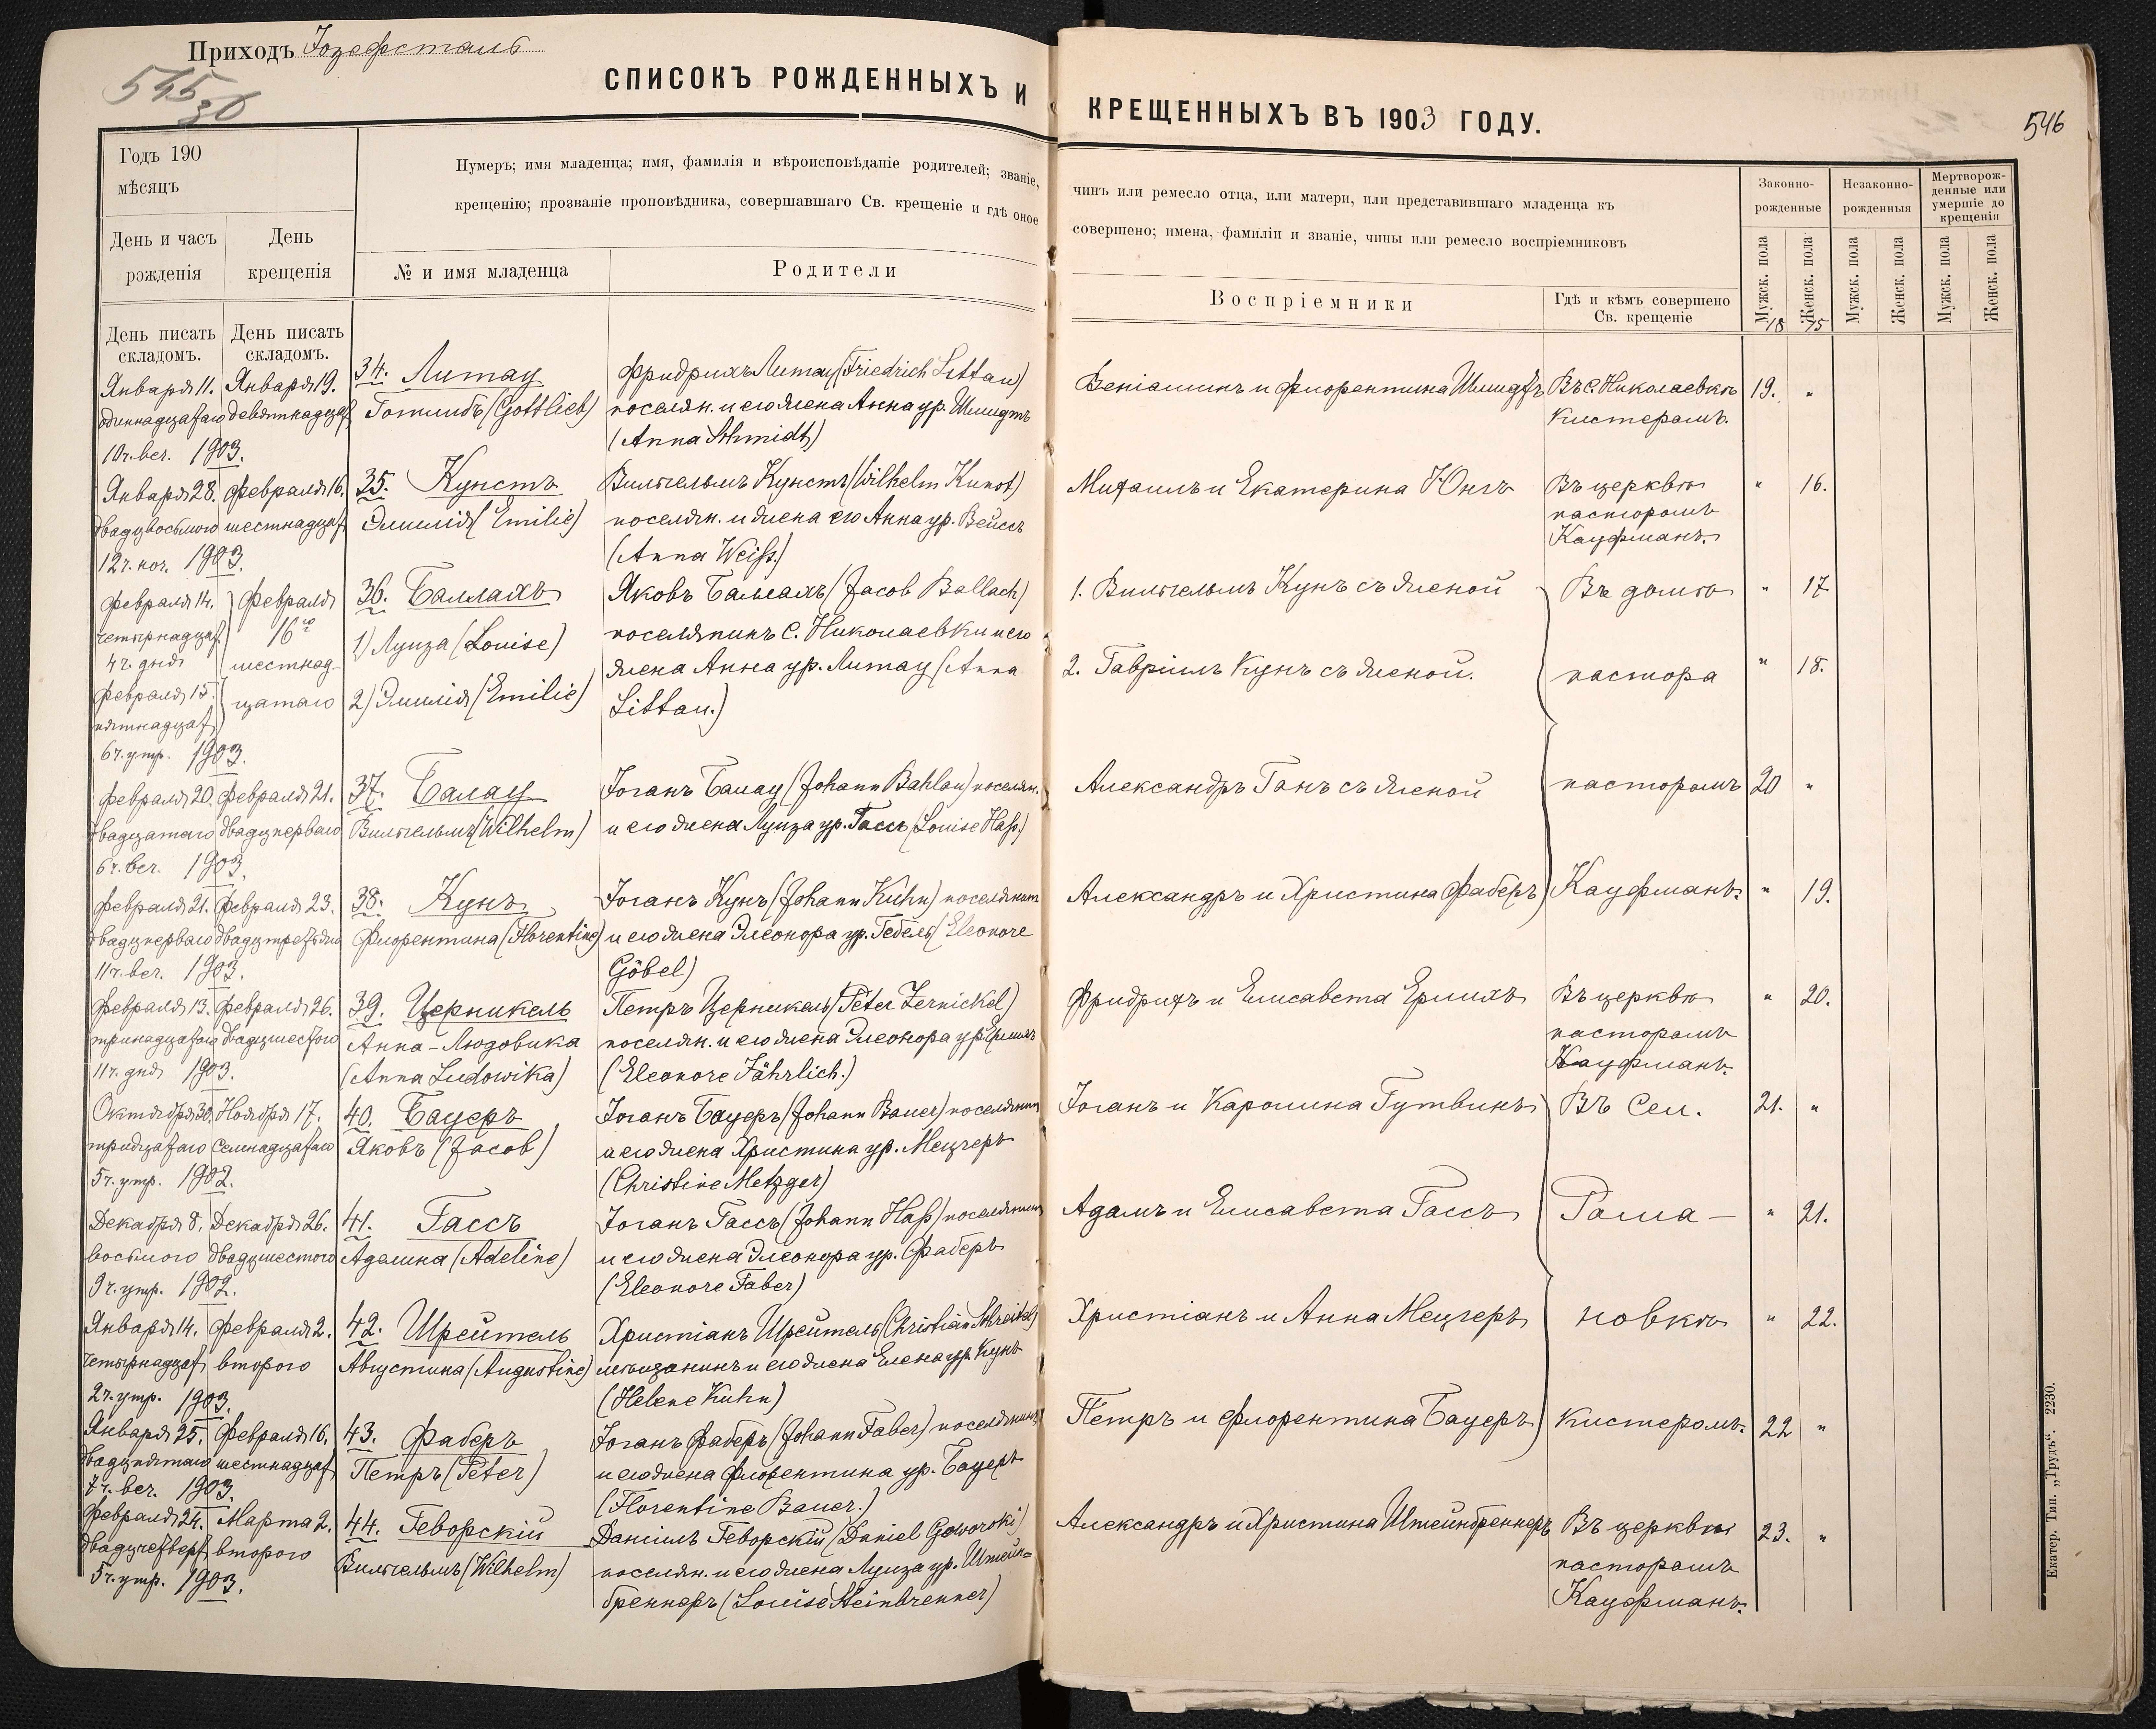 Приходъ Іозефсталь
545
30
СПИСОКЪ РОЖДЕННЫХЪ И КРЕЩЕННЫХЪ ВЪ 1903 ГОДУ.
546
Годъ 190
мѣсяцъ
День и часъ рожденія
День крещенія
Нумеръ; имя младенца; имя, фамилія и вѣроисповѣданіе родителей; званіе, чинъ или ремесло отца, или матери, или представившаго младенца къ
крещенію; прозваніе проповѣдника, совершавшаго Св. крещеніе и гдѣ оное совершено; имена, фамиліи и званіе, чины или ремесло воспріемниковъ
№ и имя младенца
Родители
Воспріемники
Гдѣ и кѣмъ совершено Св. крещеніе
Законно-рожденные
Незаконно-рожденныя
Мертворож-денные или умершіе до крещенія
Мужск. пола
Женск. пола
Мужск. пола
Женск. пола
Мужск. пола
Женск. пола
18 15
День писать складомъ.
День писать складомъ.
Января 11.
одиннадцатаго
10 ч. веч. 1903.
Января 19.
девятнадцат
34. Литау
Готлибъ (Gottlieb)
Фридрихъ Литау (Friedrich Littau)
поселян. и его жена Анна ур. Шмидтъ
(Anna Schmidt)
Веніаминъ и Флорентина Шмидтъ
Въ с. Николаевкѣ
кистеромъ.
19. "
Января 28.
двадцвосьмого
12 ч. ноч. 1903.
Февраля 16.
шестнадцат
35. Кунстъ
Эмилія (Emilie)
Вильгельмъ Кунстъ (Wilhelm Kunst)
поселян. и жена его Анна ур. Вейссъ
(Anna Weiß.)
Михаилъ и Екатерина Юнгъ
Въ церквѣ
пасторомъ
Кауфманъ.
" 16.
Февраля 14.
четырнадцат
4 ч. дня
Февраля 15.
пятнадцат
6 ч. утр. 1903.
Февраля
16го
шестнад-
цатаго
36. Баллахъ
1) Луиза (Louise)
2) Эмилія (Emilie)
Яковъ Баллахъ (Jacob Ballach)
поселянинъ с. Николаевки и его
жена Анна ур. Литау (Anna
Littau.)
1. Вильгельмъ Кунъ съ женой
2. Гавріилъ Кунъ съ женой.
Въ домѣ
пастора
" 17
" 18.
Февраля 20.
двадцатаго
6 ч. веч. 1903.
Февраля 21.
двадцперваго
37. Балау
Вильгельмъ (Wilhelm)
Іоганъ Балау (Johann Bahlau) поселян.
и его жена Луиза ур. Гассъ (Louise Haß.)
Александръ Ганъ съ женой
пасторомъ
20 "
Февраля 21.
двадцперваго
11 ч. веч. 1903.
Февраля 23.
38. Кунъ
Флорентина (Florentine)
Іоганъ Кунъ (Johann Kuhn) поселянинъ
и его жена Элеонора ур. Гебель (Eleonore
Göbel)
Александръ и Христина Фаберъ
Кауфманъ.
" 19.
Февраля 13.
тринадцатаго
11 ч. дня 1903.
Февраля 26.
двадцшестого
39. Церникель
Анна-Людовика
(Anna Ludowika)
Петръ Церникель (Peter Zernickel)
поселян. и его жена Элеонора ур.
(Eleonore Jährlich.)
Фридрихъ и Елисавета Ерлихъ
Въ церквѣ
пасторомъ
Кауфманъ.
" 20.
Октября 30.
тридцатаго
5 ч. утр. 1902.
Ноября 17.
семнадцатаго
40. Бауеръ
Яковъ (Jacob)
Іоганъ Бауеръ (Johann Bauer) поселянинъ
и его жена Христина ур. Мецгеръ
(Christine Metzger)
Іоганъ и Каролина Гутвинъ
Въ Сел.
21. "
Декабря 8.
восьмого
9 ч. утр. 1902.
Декабря 26.
двадцшестого
41. Гассъ
Аделина (Adeline)
Іоганъ Гассъ (Johann Haß) поселянинъ
и его жена Элеонора ур. Фаберъ
(Eleonore Faber)
Адамъ и Елисавета Гассъ
Рома-
" 21.
Января 14.
четырнадцат
2 ч. утр. 1903.
Февраля 2.
второго
42. Шрейтель
Августина (Augustine)
Христіанъ Шрейтель (Christian Schreitel)
мѣщанинъ и его жена Елена ур. Кунъ
(Helene Kuhn)
Христіанъ и Анна Мецгеръ
новкѣ
" 22.
Января 25.
двадцпятаго
7 ч. веч. 1903.
Февраля 16.
шестнадцат
43. Фаберъ
Петръ (Peter)
Іоганъ Фаберъ (Johann Faber) поселянинъ
и его жена Флорентина ур. Бауеръ
(Florentine Bauer.)
Петръ и Флорентина Бауеръ
кистеромъ.
22 "
Февраля 24.
двадцчетверт
5 ч. утр. 1903.
Марта 2.
второго
44. Геворскій
Вильгельмъ (Wilhelm)
Даніилъ Геворскій (Daniel Goworski)
поселян. и его жена Луиза ур. Штейн=
бреннеръ (Louise Steinbrenner)
Александръ и Христина Штейнбреннеръ
Въ церквѣ
пасторомъ
Кауфманъ.
23. "
Екатер. Тип. „Трудъ“. 2230.